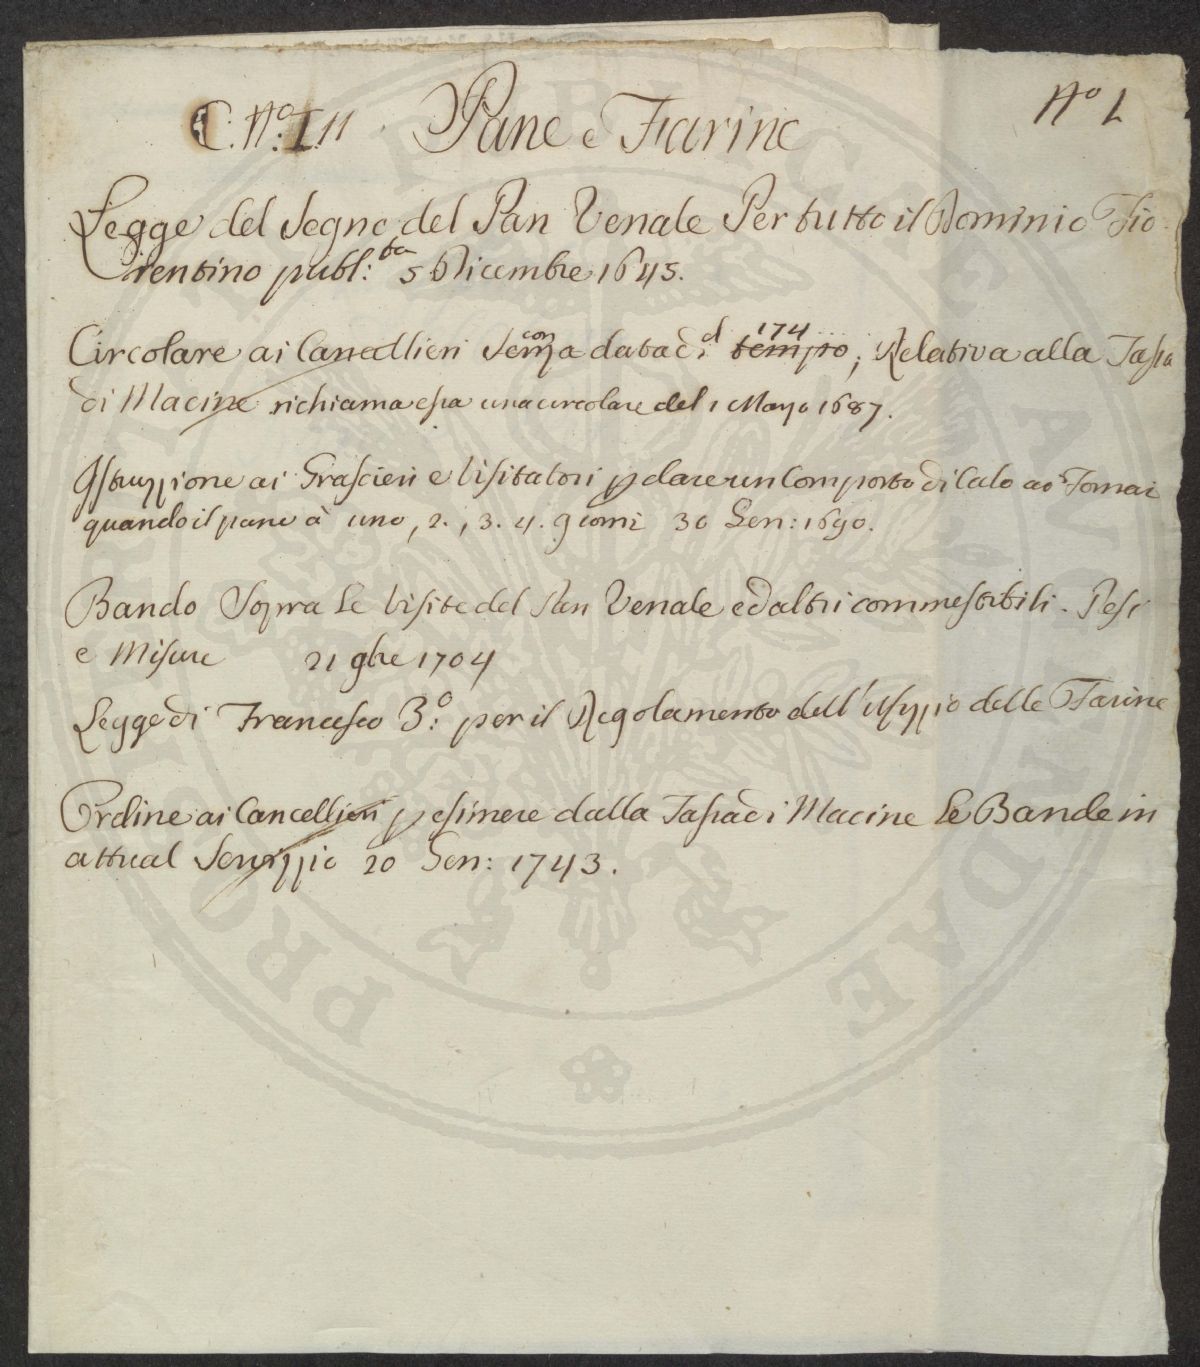 C. N.º I. 11 Pane e Farine Nº 1
Legge del Segno del Pan Venale Per tutto il Dominio Fio-
rentino publ:ta 5 Dicembre 1645.
Circolare ai Cancellieri con data di 174... ; Relativa alla Tassa
di Macine richiama essa una circolare del 1 Mago 1687.
Istruzzione ai Grascieri e Visitatori p dare un Comporto di Calo ai Fornai
quando il pane à uno, 2., 3. 4. giorni 30 Gen: 1690.
Bando Sopra Le Visite del Pan Venale ed altri commestibili. Pesi
e Misure 21 9bre 1704
Legge di Francesco 3.º per il Regolamento dell'Ufizzio delle Farine
Ordine ai Cancellieri p esimere dalla Tassa di Macine Le Bande in
attual Servizzio 20 Gen: 1743.
PRO BIBLIOTHECAE PUBLICAE